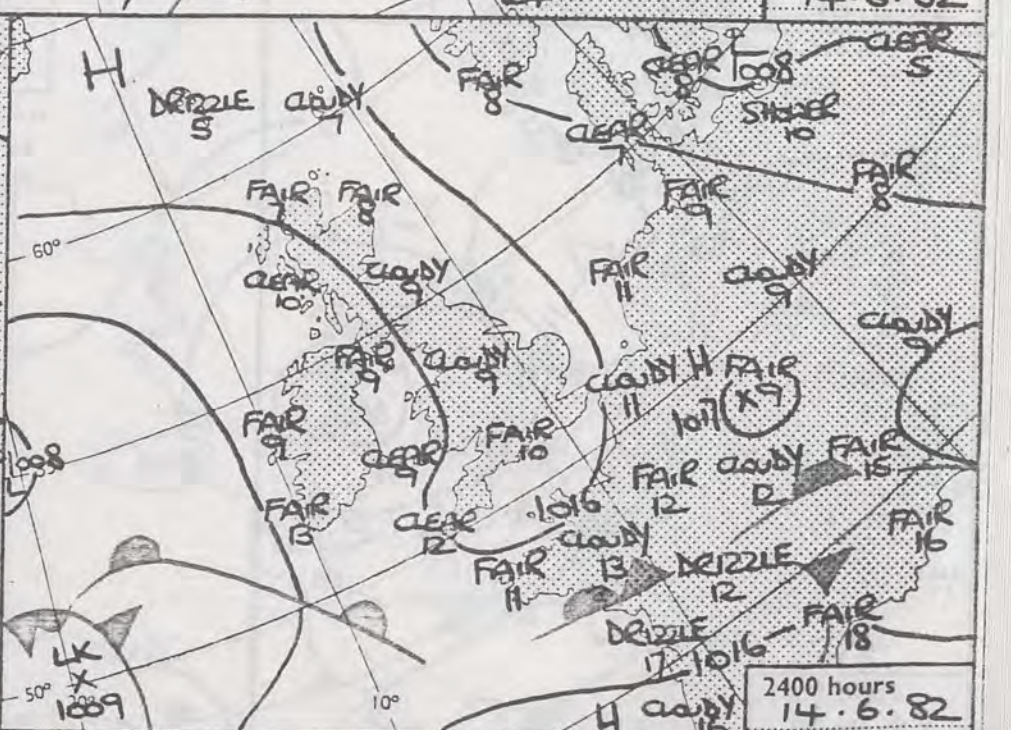 14.6.82
CLEAR
5
H
FAIR
8
CLEAR
8
L
1008
DRIZZLE
5
CLOUDY
7
SHOWER
10
CLEAR
7
FAIR
FAIR
8
FAIR
9
FAIR
60°
CLEAR
10
CLOUDY
9
FAIR
11
CLOUDY
9
CLOUDY
9
FAIR
9
CLOUDY
9
CLOUDY
11
H
FAIR
x9
1017
FAIR
9
CLEAR
9
FAIR
10
1008
L
FAIR
12
CLOUDY
12
FAIR
15
FAIR
13
CLEAR
12
1016
CLOUDY
13
FAIR
16
FAIR
11
DRIZZLE
12
DRIZZLE
17
1016
FAIR
18
X
1009
50°
10°
H
CLOUDY
2400 hours
14.6.82